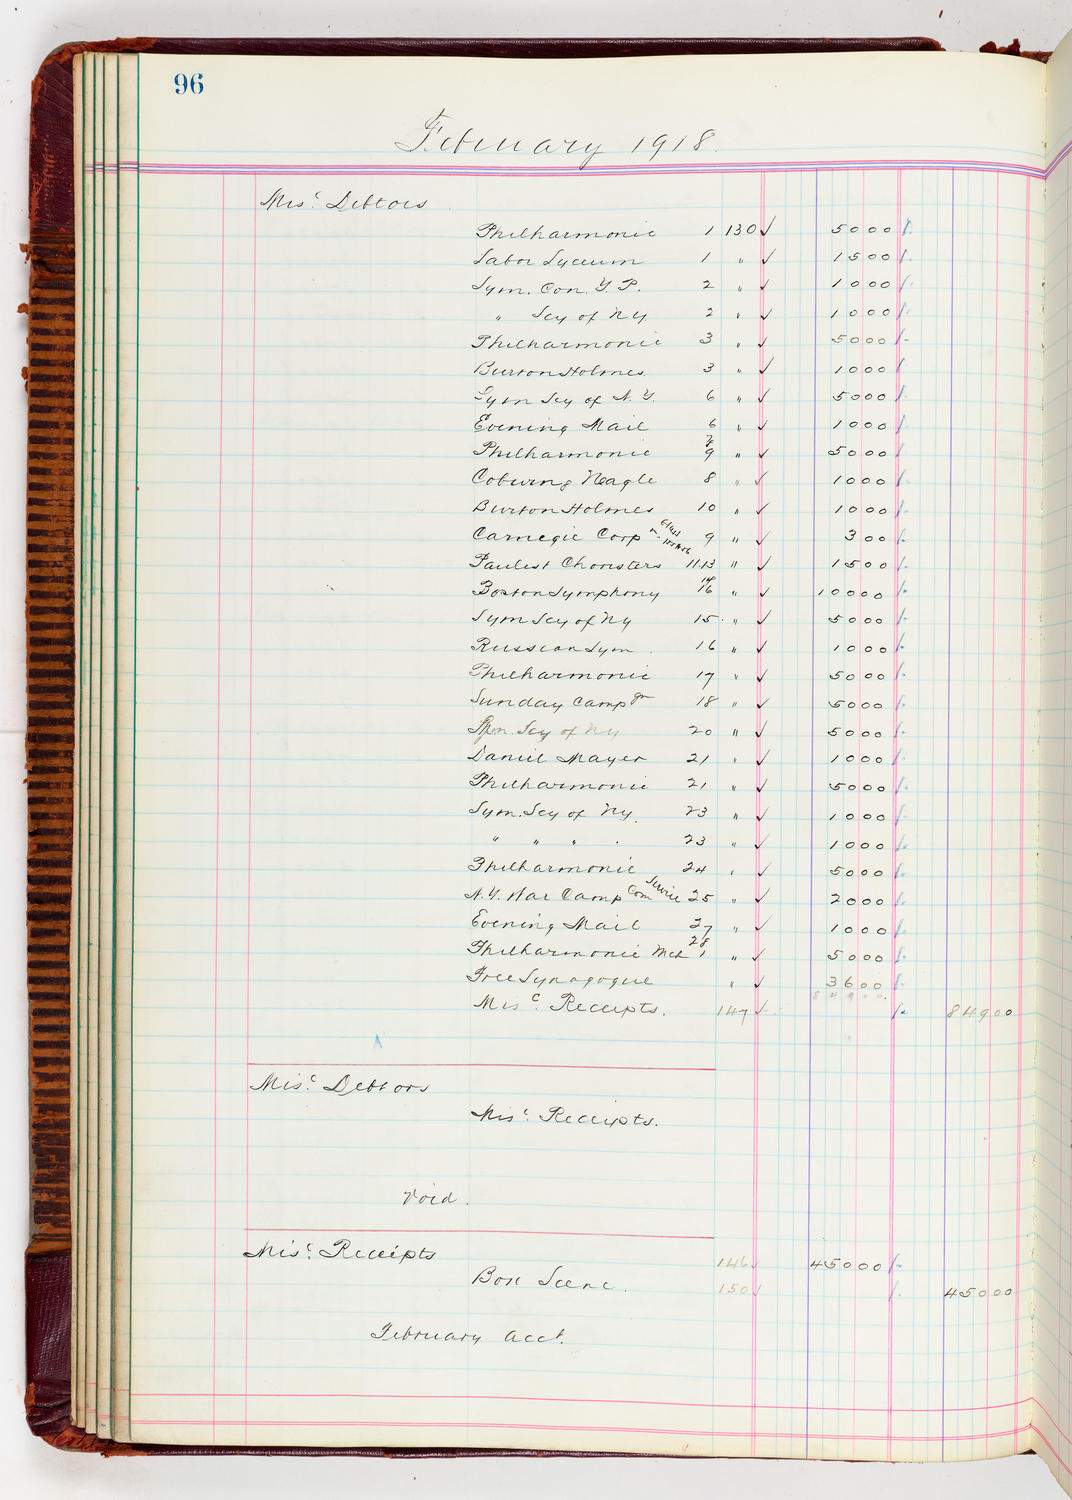 96
February 1918.
Misc. Debtors
Philharmonic 1 130 ✓ 50 00
Labor Lyceum 1 " ✓ 15 00
Sym. Con. Y. P. 2 " ✓ 10 00
" Scy of NY 2 " ✓ 10 00
Philharmonic 3 " ✓ 50 00
Burton Holmes 3 " ✓ 10 00
Sym Scy of N.Y. 6 " ✓ 50 00
Evening Mail 6 " ✓ 10 00
Philharmonic 7/9 " ✓ 50 00
Coburng Neagle 8 " ✓ 10 00
Burton Holmes 10 " ✓ 10 00
Carnegie Corp Glass 9 " ✓ 3 00
Paulist Choristers 11.13 " ✓ 15 00
Boston Symphony 14/16 " ✓ 100 00
Sym Scy of Ny 15 " ✓ 50 00
Russian Sym. 16 " ✓ 10 00
Philharmonic 17 " ✓ 50 00
Sunday Campgn 18 " ✓ 50 00
Sym. Scy of Ny 20 " ✓ 50 00
Daniel Mayer 21 " ✓ 10 00
Philharmonic 21 " ✓ 50 00
Sym. Scy of Ny. 23 " ✓ 10 00
" " " 23 " ✓ 10 00
Philharmonic 24 " ✓ 50 00
N.Y. War Camp Com Service 25 " ✓ 20 00
Evening Mail 27 " ✓ 10 00
Philharmonic 28 Mch 1 " ✓ 50 00
Free Synagogue " ✓ 36 00
849 00
Misc. Receipts. 147 ✓ 849 00
Misc. Debtors
Misc. Receipts.
Void.
Misc. Receipts 146 ✓ 450 00
Box Scene. 150 ✓ 450 00
February acct.